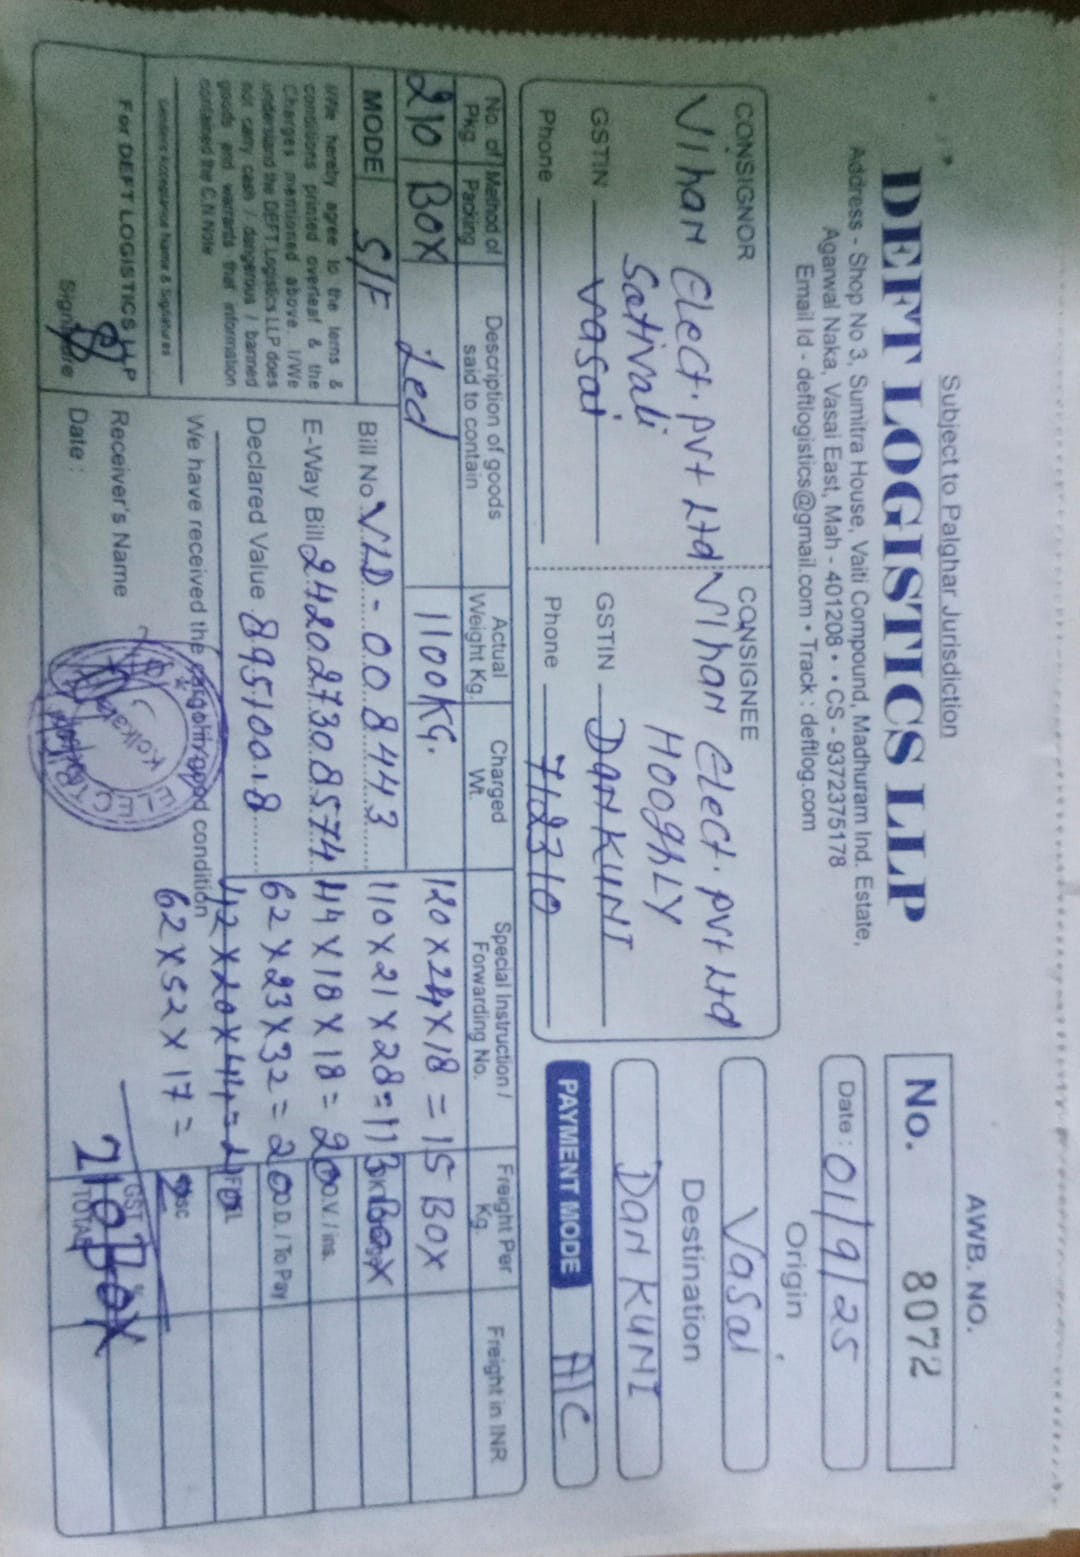 Subject to Palghar Jurisdiction
AWB. NO.
DEFT LOGISTICS LLP
No. 8072
Address - Shop No 3, Sumitra House, Vaiti Compound, Madhuram Ind. Estate,
Agarwal Naka, Vasai East, Mah - 401208 • • CS - 9372375178
Email Id - deftlogistics@gmail.com • Track : deftlog.com
Date : 01/9/25
CONSIGNOR
Vihan Elect. pvt Ltd
Sativali
GSTIN Vasai
Phone
CONSIGNEE
Vihan Elect. pvt Ltd
HOOGHLY
GSTIN DANKUNI
Phone 712310
Origin
Vasai
Destination
DANKUNI
PAYMENT MODE A/C
No. of Pkg. Method of Packing Description of goods said to contain Actual Weight Kg. Charged Wt. Special Instruction / Forwarding No. Freight Per Kg. Freight in INR
210 BOX Led 1100KG. 120 x 24 x 18 = 15 BOX
MODE S/F Bill No VLD-008443 110 x 21 x 28 = 113 BOX
I/We hereby agree to the terms &
conditions printed overleaf & the
Charges mentioned above. I/We
understand the DEFT Logistics LLP does
not carry cash / dangerous / banned
goods and warrants that information
contained the C.N Note
E-Way Bill 242027308574 44 x 18 x 18 = 20 O.V / ins.
Declared Value 895100.8 62 x 23 x 32 = 20 O.D. / To Pay
42 x 20 x 44 =
We have received the condition
62 x 52 x 17 =
Senders Acceptance Name & Signatures
For DEFT LOGISTICS LLP
Signature
Receiver's Name
Date :
Kolkata
GST
TOTAL
210 BOX